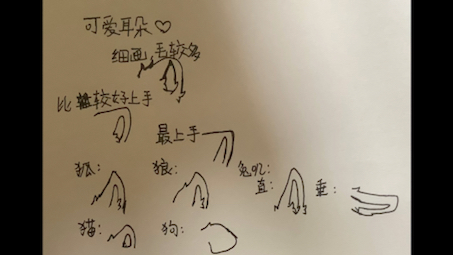 可爱耳朵♡
细画,毛较多
比较好上手
最上手
狐:
狼:
兔叽:
直:
垂:
猫:
狗: